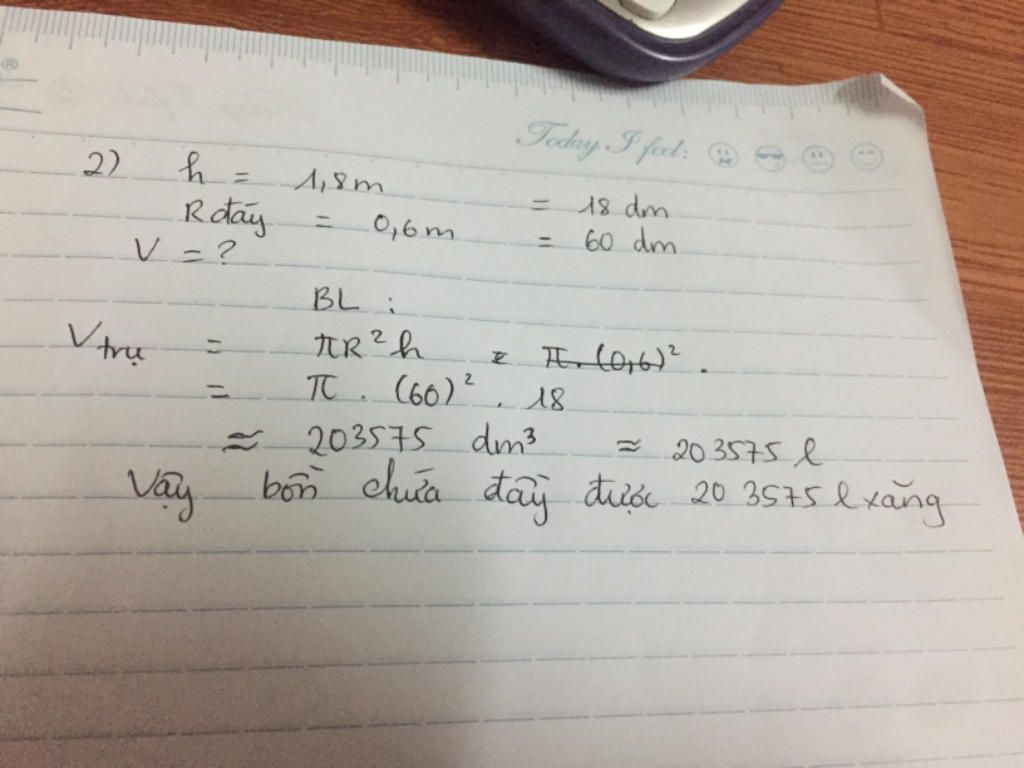 Today I feel:
2) h = 1,8m = 18 dm
R đáy = 0,6m = 60 dm
V = ?
BL :
Vtrụ = πR²h = π.(0,6)².
= π . (60)² . 18
≈ 203575 dm³ ≈ 203575 l
Vậy bồn chứa đầy được 203575 l xăng